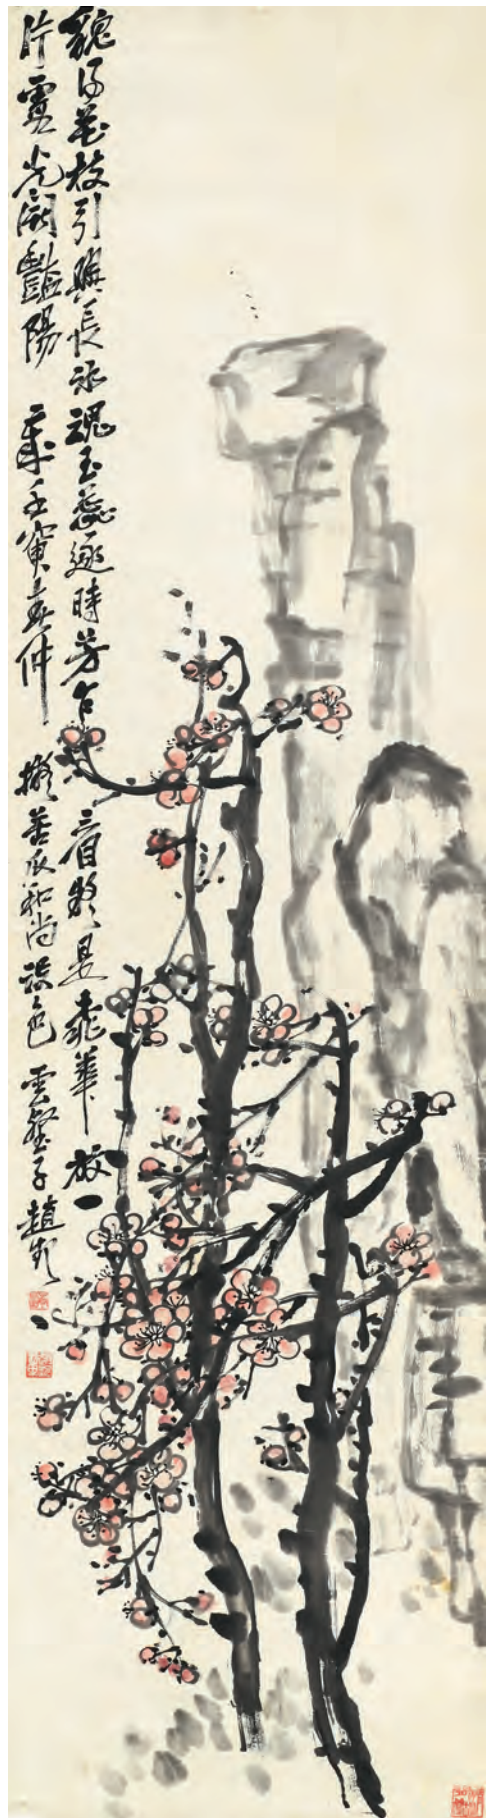 貌得花枝引興長冰魂玉蕊逐時芳乍看疑是桃華放一
片霞光鬭豔陽 歲壬寅春仲 擬苦瓜和尚設色 雲壑子趙起